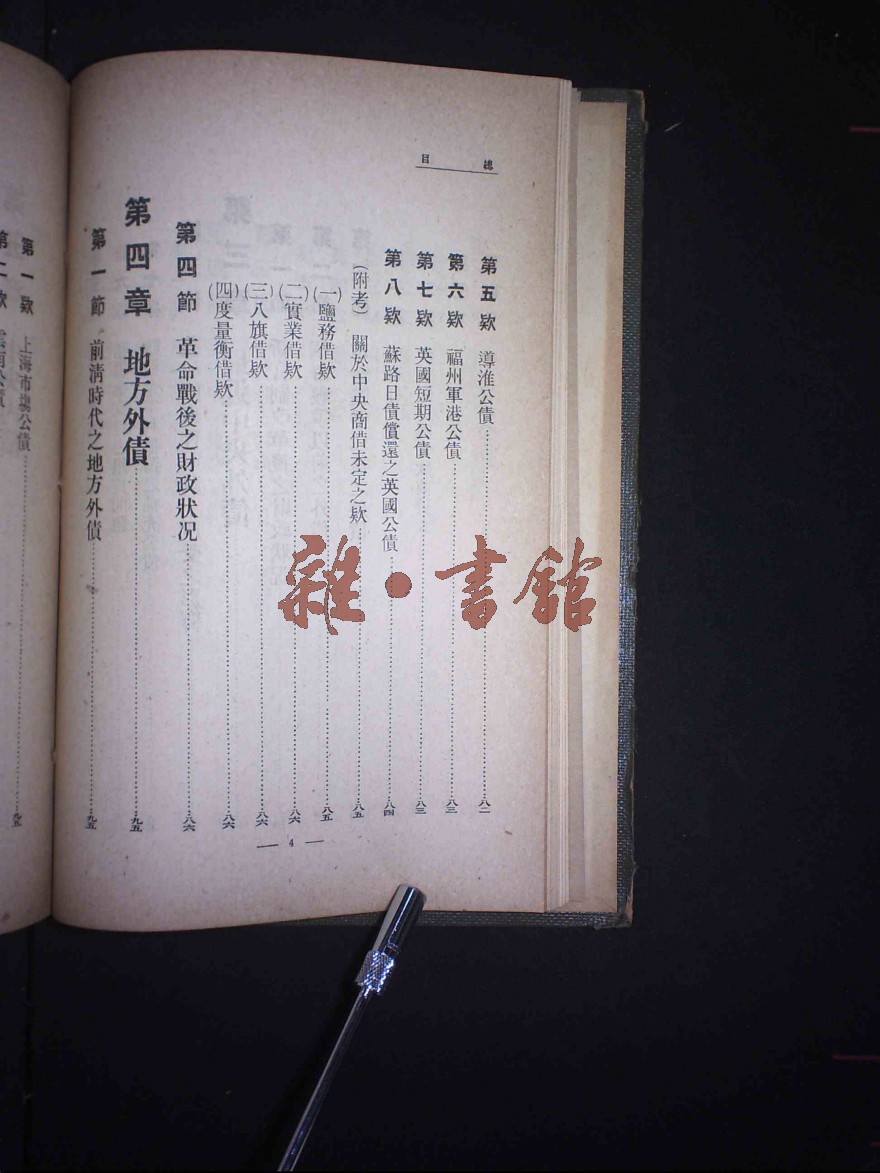 總目
第五欵 導淮公債 八二
第六欵 福州軍港公債 八三
第七欵 英國短期公債 八三
第八欵 蘇路日債償還之英國公債 八四
(附考) 關於中央商借未定之欵 八五
(一)鹽務借欵 八五
(二)實業借欵 八六
(三)八旗借欵 八六
(四)度量衡借欵 八六
第四節 革命戰後之財政狀况 八六
第四章 地方外債 九五
第一節 前淸時代之地方外債 九五
— 4 —
第一欵 上海市塲公債 九五
第二欵
公債
雜·書館